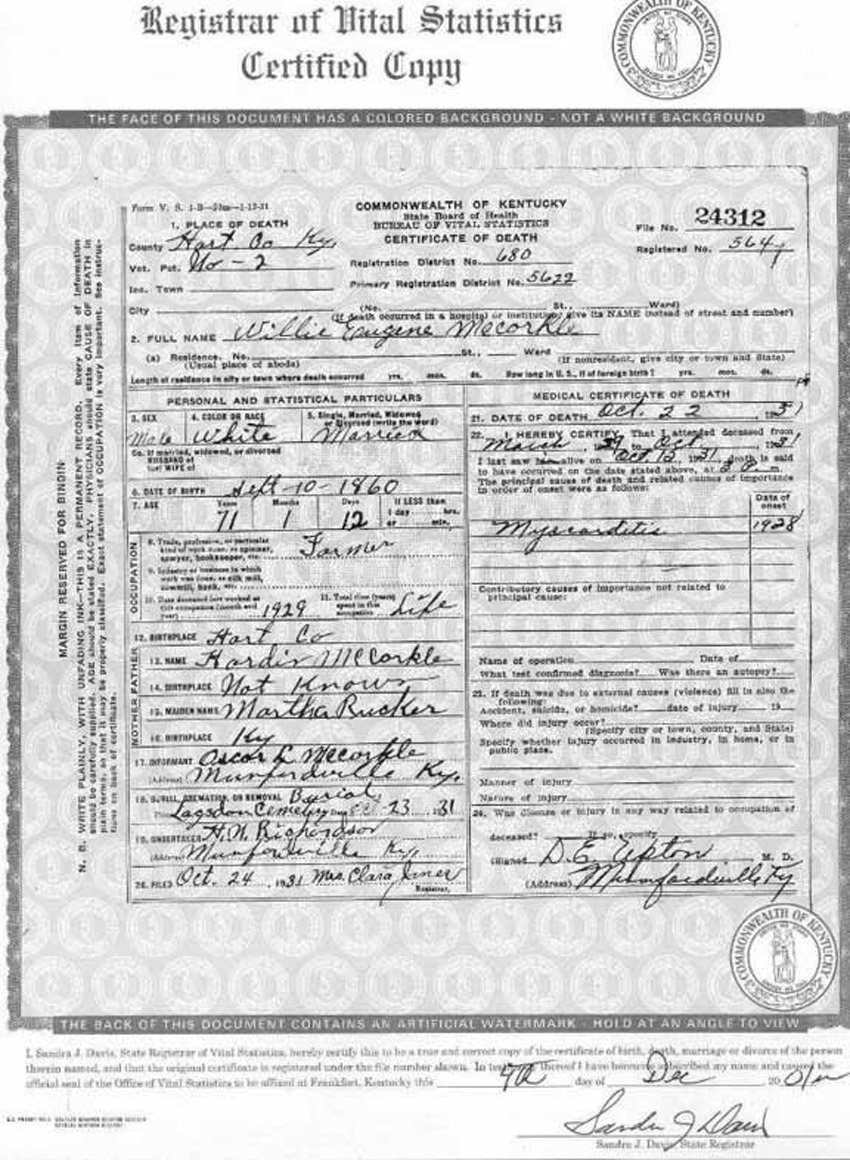 Registrar of Vital Statistics
Certified Copy
COMMONWEALTH OF KENTUCKY
THE FACE OF THIS DOCUMENT HAS A COLORED BACKGROUND - NOT A WHITE BACKGROUND
MARGIN RESERVED FOR BINDIN
N. B. WRITE PLAINLY, WITH UNFADING INK—THIS IS A PERMANENT RECORD. Every item of information
should be carefully supplied. AGE should be stated EXACTLY. PHYSICIANS should state CAUSE OF DEATH in
plain terms, so that it may be properly classified. Exact statement of OCCUPATION is very important. See instruc-
tions on back of certificate.
Form V. S. 1-B
COMMONWEALTH OF KENTUCKY
State Board of Health
BUREAU OF VITAL STATISTICS
CERTIFICATE OF DEATH
File No. 24312
Registered No. 564
1. PLACE OF DEATH
County Hart Co Ky,
Vot. Pct. No - 2
Registration District No. 680
Inc. Town
Primary Registration District No. 5622
City (No. St., Ward)
(If death occurred in a hospital or institution, give its NAME instead of street and number)
2. FULL NAME Willie Eugene Mccorkle
(a) Residence, No. St., Ward
(Usual place of abode) (If nonresident, give city or town and State)
Length of residence in city or town where death occurred yrs. mos. ds. How long in U. S., if of foreign birth? yrs. mos. ds.
PERSONAL AND STATISTICAL PARTICULARS
3. SEX 4. COLOR OR RACE 5. Single, Married, Widowed
or Divorced (write the word)
Male White Married
5a. If married, widowed, or divorced
HUSBAND of
(or) WIFE of
6. DATE OF BIRTH Sept-10-1860
7. AGE Years Months Days If LESS than
71 1 12 1 day hrs.
or min.
OCCUPATION
8. Trade, profession, or particular
kind of work done, as spinner,
sawyer, bookkeeper, etc. Farmer
9. Industry or business in which
work was done, as silk mill,
sawmill, bank, etc.
10. Date deceased last worked at
this occupation (month and
year) 1929
11. Total time (years)
spent in this
occupation Life
12. BIRTHPLACE Hart Co
FATHER
13. NAME Hardin McCorkle
14. BIRTHPLACE Not Known
MOTHER
15. MAIDEN NAME Martha Rucker
16. BIRTHPLACE Ky
17. INFORMANT Oscar L Mccorkle
(Address) Munfordville Ky,
18. BURIAL, CREMATION, OR REMOVAL Burial
Lagsdon Cemetery 23 31
19. UNDERTAKER H.N. Richardson
(Address) Munfordville Ky,
20. FILED Oct. 24, 1931 Mrs. Clara
Registrar.
MEDICAL CERTIFICATE OF DEATH
21. DATE OF DEATH Oct. 22, 1931
22. I HEREBY CERTIFY, That I attended deceased from
March to Oct 1931
I last saw alive on Oct 15, 1931, death is said
to have occurred on the date stated above, at m.
The principal cause of death and related causes of importance
in order of onset were as follows:
Date of
onset
Myocarditis 1928
Contributory causes of importance not related to
principal cause:
Name of operation Date of
What test confirmed diagnosis? Was there an autopsy?
23. If death was due to external causes (violence) fill in also the
following:
Accident, suicide, or homicide? date of injury 19
Where did injury occur?
(Specify city or town, county, and State)
Specify whether injury occurred in industry, in home, or in
public place.
Manner of injury
Nature of injury
24. Was disease or injury in any way related to occupation of
deceased? If so, specify
(Signed) D.E. Upton M. D.
(Address) Munfordville Ky
COMMONWEALTH OF KENTUCKY
THE BACK OF THIS DOCUMENT CONTAINS AN ARTIFICIAL WATERMARK - HOLD AT AN ANGLE TO VIEW
I, Sandra J. Davis, State Registrar of Vital Statistics, hereby certify this to be a true and correct copy of the certificate of birth, death, marriage or divorce of the person
therein named, and that the original certificate is registered under the file number shown. In testimony thereof I have hereunto subscribed my name and caused the
official seal of the Office of Vital Statistics to be affixed at Frankfort, Kentucky this 9th day of Dec 20
Sandra J Davis
Sandra J. Davis, State Registrar